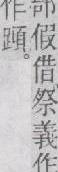 部假借祭義作
作蹞。